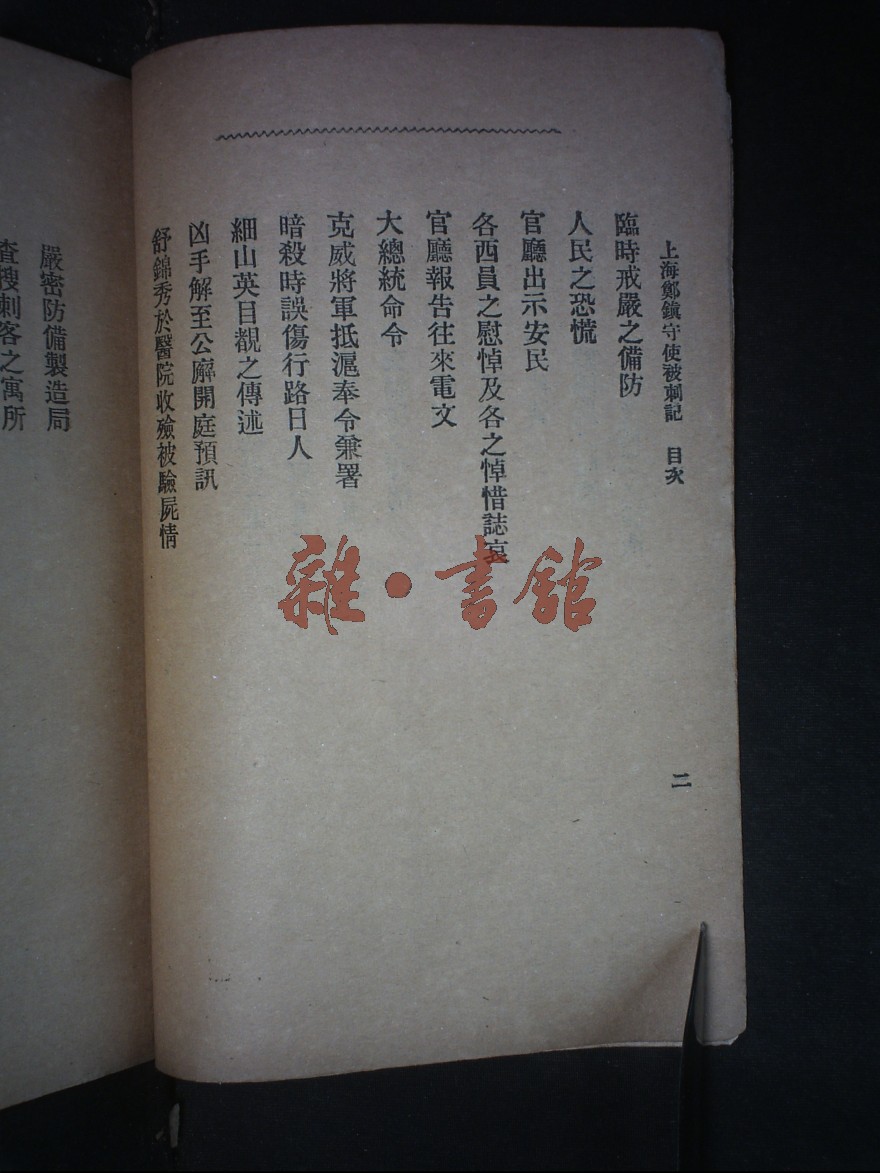 上海鄭鎮守使被刺記　目次
二
臨時戒嚴之備防
人民之恐慌
官廳出示安民
各西員之慰悼及各之悼惜誌哀
官廳報告往來電文
大總統命令
克威將軍抵滬奉令兼署
暗殺時誤傷行路日人
細山英目覩之傳述
凶手解至公廨開庭預訊
舒錦秀於醫院收殮被驗屍情
嚴密防備製造局
查搜刺客之寓所
雜·書館